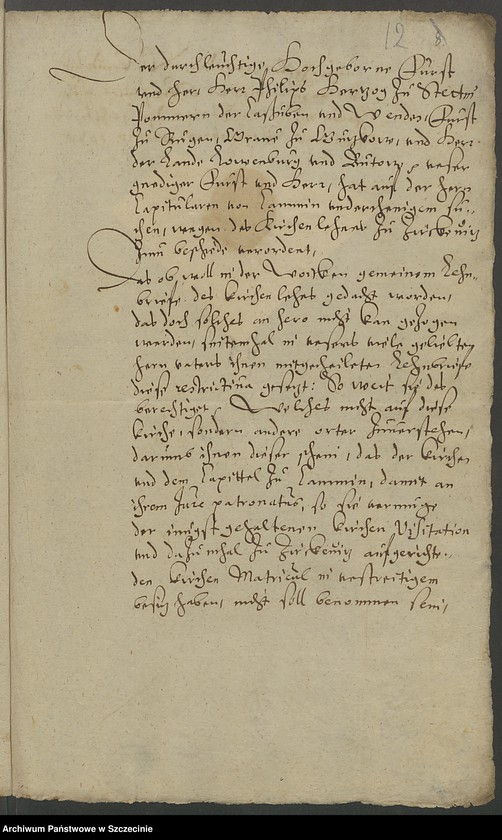 12 8.
Der durchleuchtige, Hochgeborne Fürst
vnd Her, Herr Philips Hertzog zu Stettin
Pommern der Cassuben vnd Wenden, Fürst
zu Rugen, Graue zu Gutzkow, vnd Herr
der Lande Lowenburg vnd Butow, vnser
gnediger Fürst vnd Herr, hat auf der Hern
Capitularen von Cammin vnderthenigem su-
chen, wegen des Kirchen lehens zu
zum bescheide verordent,
Das ob woll in der Woidken gemeinem Lehn-
briefe des kirchen lehns gedacht worden,
das doch solches an hero nicht kan gezogen
werden, sintemhal in vnsers viele geliebten
hern vaters ihnen mitgetheileten Lehnbriefe
diese restrictina gesetzt: So weit sie des
berechtiget, Welches nicht auf diese
kirche, sondern andere orter zuuerstehen,
darumb ihnen dieser, das der kirchen
vnd dem Capittel zu Cammin, damit an
ihrem Jure patronatus, so sie vermuge
der jungst gehaltenen kirchen Visitation
vnd dazumhal zu aufgerichte-
den kirchen Matricul in vnstreitigem
besitz haben, nicht soll benommen sein,
Archiwum Państwowe w Szczecinie